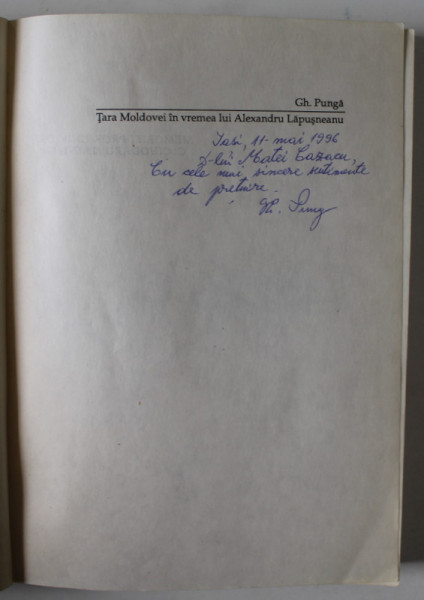 Gh. Pungă
Țara Moldovei în vremea lui Alexandru Lăpușneanu
Iași, 11-mai 1996
D-lui Matei Cazacu,
Cu cele mai sincere sentimente
de prețuire.
Gh. Pung